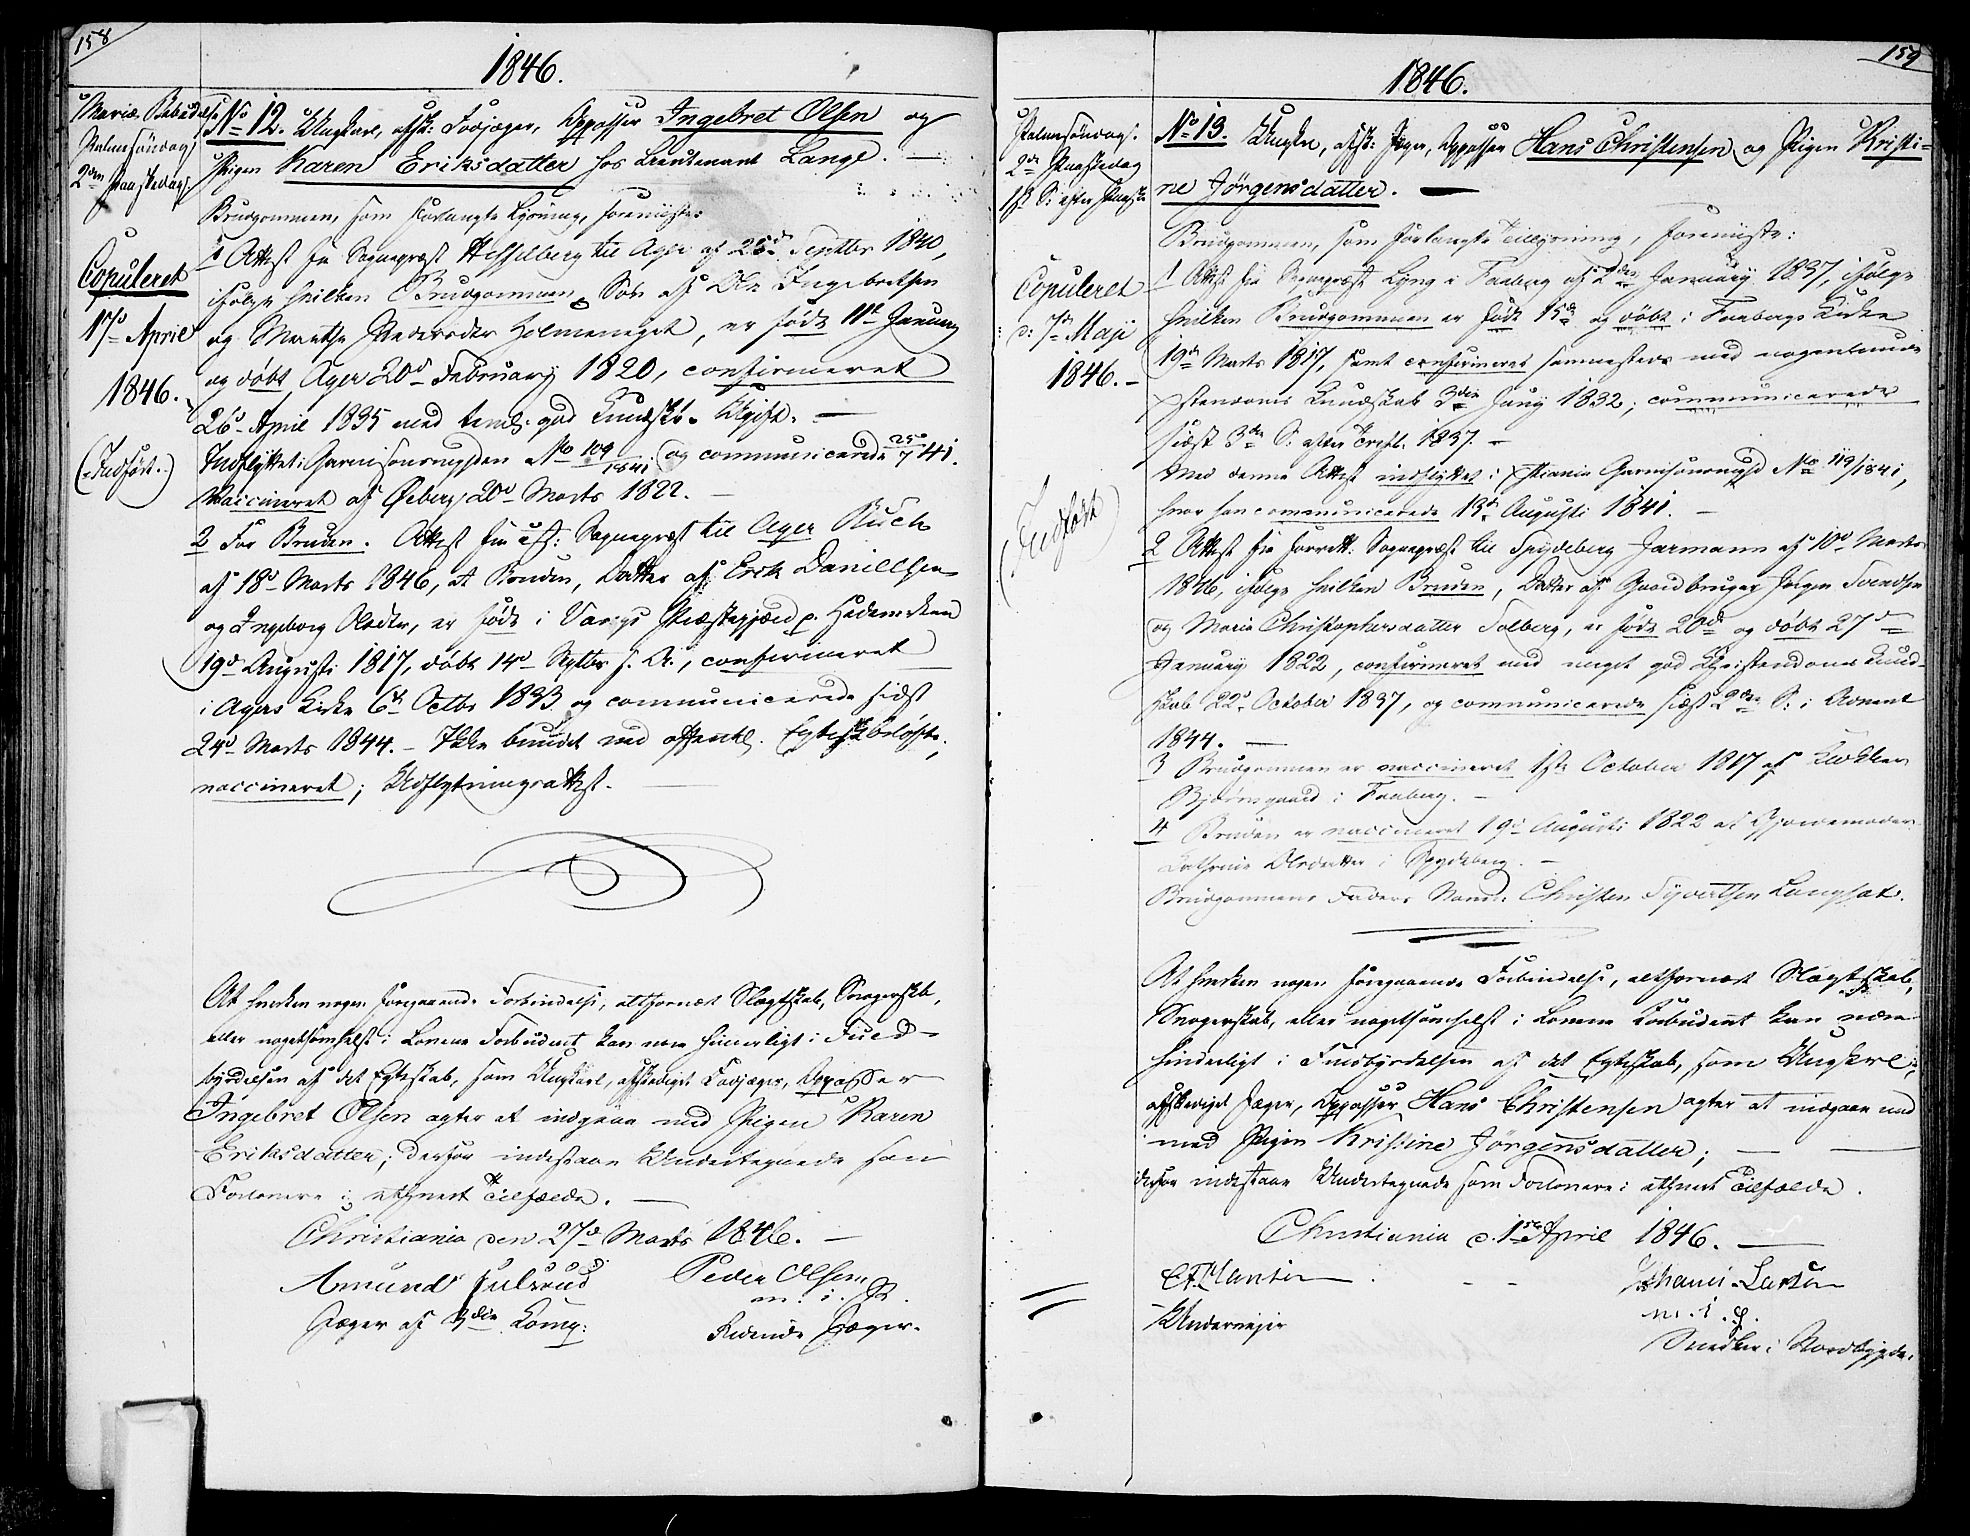 158
1846.
Mariæ Bebudelse
Palmesöndag
2den Paaskedag.
Copuleret
17d April
1846.
(Indført.)
No 12. Ungkarl, afsk: Fodjæger, Oppasser Ingebret Olsen og
Pigen Karen Eriksdatter hos Lieutenant Lange. —
Brudgommen, som forlangte Lysning, foreviiste:
1 Attest fra Sognepræst Hesselberg til Ager af 26d Septbr 1840,
ifølge hvilken Brudgommen, Søn af Ole Ingebretsen
og Marethe Andersdtr Holmeneget, er født 11te Januar
og døbt Ager 20d February 1820, confirmeret
26d April 1835 med temlg: god Kundskb. Ugift. —
Indflyttet i Garnisonsmgden No 109/1841 og communicerede 25/7 41.
Vaccineret af Öeberg 20d Marts 1822. —
2 For Bruden. Attest fra Sognepræst til Ager Buch
af 18d Marts 1846, at Bruden, Datter af Erik Daniellsen
og Ingeborg Olsdtr, er født i Vangs Præstegjæld p. Hedemarken
19d Augusti 1817, döbt 14d Septbr s. A., confirmeret
i Agers Kirke 6te Octbr 1833 og communicerede sidst
24d Marts 1844. - Ikke bundet ved offentl. Egteskbsløfte;
vaccineret; Udflytningsattest. —
At hverken nogen foregaaende Forbindelse, altfornært Slægtskab, Svogerskab,
eller nogetsomhelst i Lovene Forbudent kan være hinderligt i Fuld-
byrdelsen af det Egteskab, som Ungkarl, afskediget Fodjæger, Oppasser
Ingebret Olsen agter at indgaae med Pigen Karen
Eriksdatter; derfor indestaae Undertegnede som
Forlovere i ethvert Tilfælde. —
Christiania den 27d Marts 1846. —
Amund Julsrud Peder Olsen
m. i. P.
Jæger af 3die Komp: Ridende Jæger.
159
1846.
Palmesöndag.
2den Paaskedag
1ste S: efter Paaske
Copuleret
d: 7de Maji
1846. -
(Indført)
No 13. Ungkrl, afsk: Jæger, Oppasser Hans Christensen og Pigen Kristi-
ne Jörgensdatter. —
Brudgommen, som forlangte Tillysning, foreviiste:
1 Attest fra Sognepræst Lyng i Faaberg af 2den January 1837, ifølge
hvilken Brudgommen er født 15de og døbt i Faabergs Kirke
19de Marts 1817, samt confirmeret sammesteds med nogenlunde
Christendoms Kundskab 3die Juny 1832; communicerede
sidst 3die S: efter Trefl. 1837. -
Med denne Attest indflyttet i Xstiania Garnisonsmgd No 119/1841,
hvor han communicerede 15d Augusti 1841. —
2 Attest fra Sognepræst til Spydeberg Jarmann af 10d Marts
1846, ifølge hvilken Bruden, Datter af Gaardbruger Jørgen Svendsen
og Maria Christophersdatter Solberg, er født 20de og döbt 27de
January 1822, confirmeret med meget god Christendoms Kund-
skab 22d October 1837, og communicerede sidst 2den S: i Advent
1844. —
3 Brudgommen er vaccineret 1ste October 1817 af Klokker
Bjørnsgaard i Faaberg. -
4 Bruden er vaccineret 19d Augusti 1822 af Gjordemoder
Cathrine Olsdatter i Spydeberg. -
Brudgommens Faders Navn: Christen Syvertsen Langsæt.
At hverken nogen foregaaende Forbindelse, altfornært Slægtskab,
Svogerskab, eller nogetsomhelst i Lovene Forbudent kan være
hinderligt i Fuldbyrdelsen af det Egteskab, som Ungkrl,
afskediget Jæger, Oppasser Hans Christensen agter at indgaae med
med Pigen Kristine Jörgensdatter; —
derfor indestaae Undertegnede som Forlovere i ethvert Tilfælde.
Christiania d. 1ste April 1846. —
Larsen
m. i. P.
Underveier
Snedker i Nordbygde.